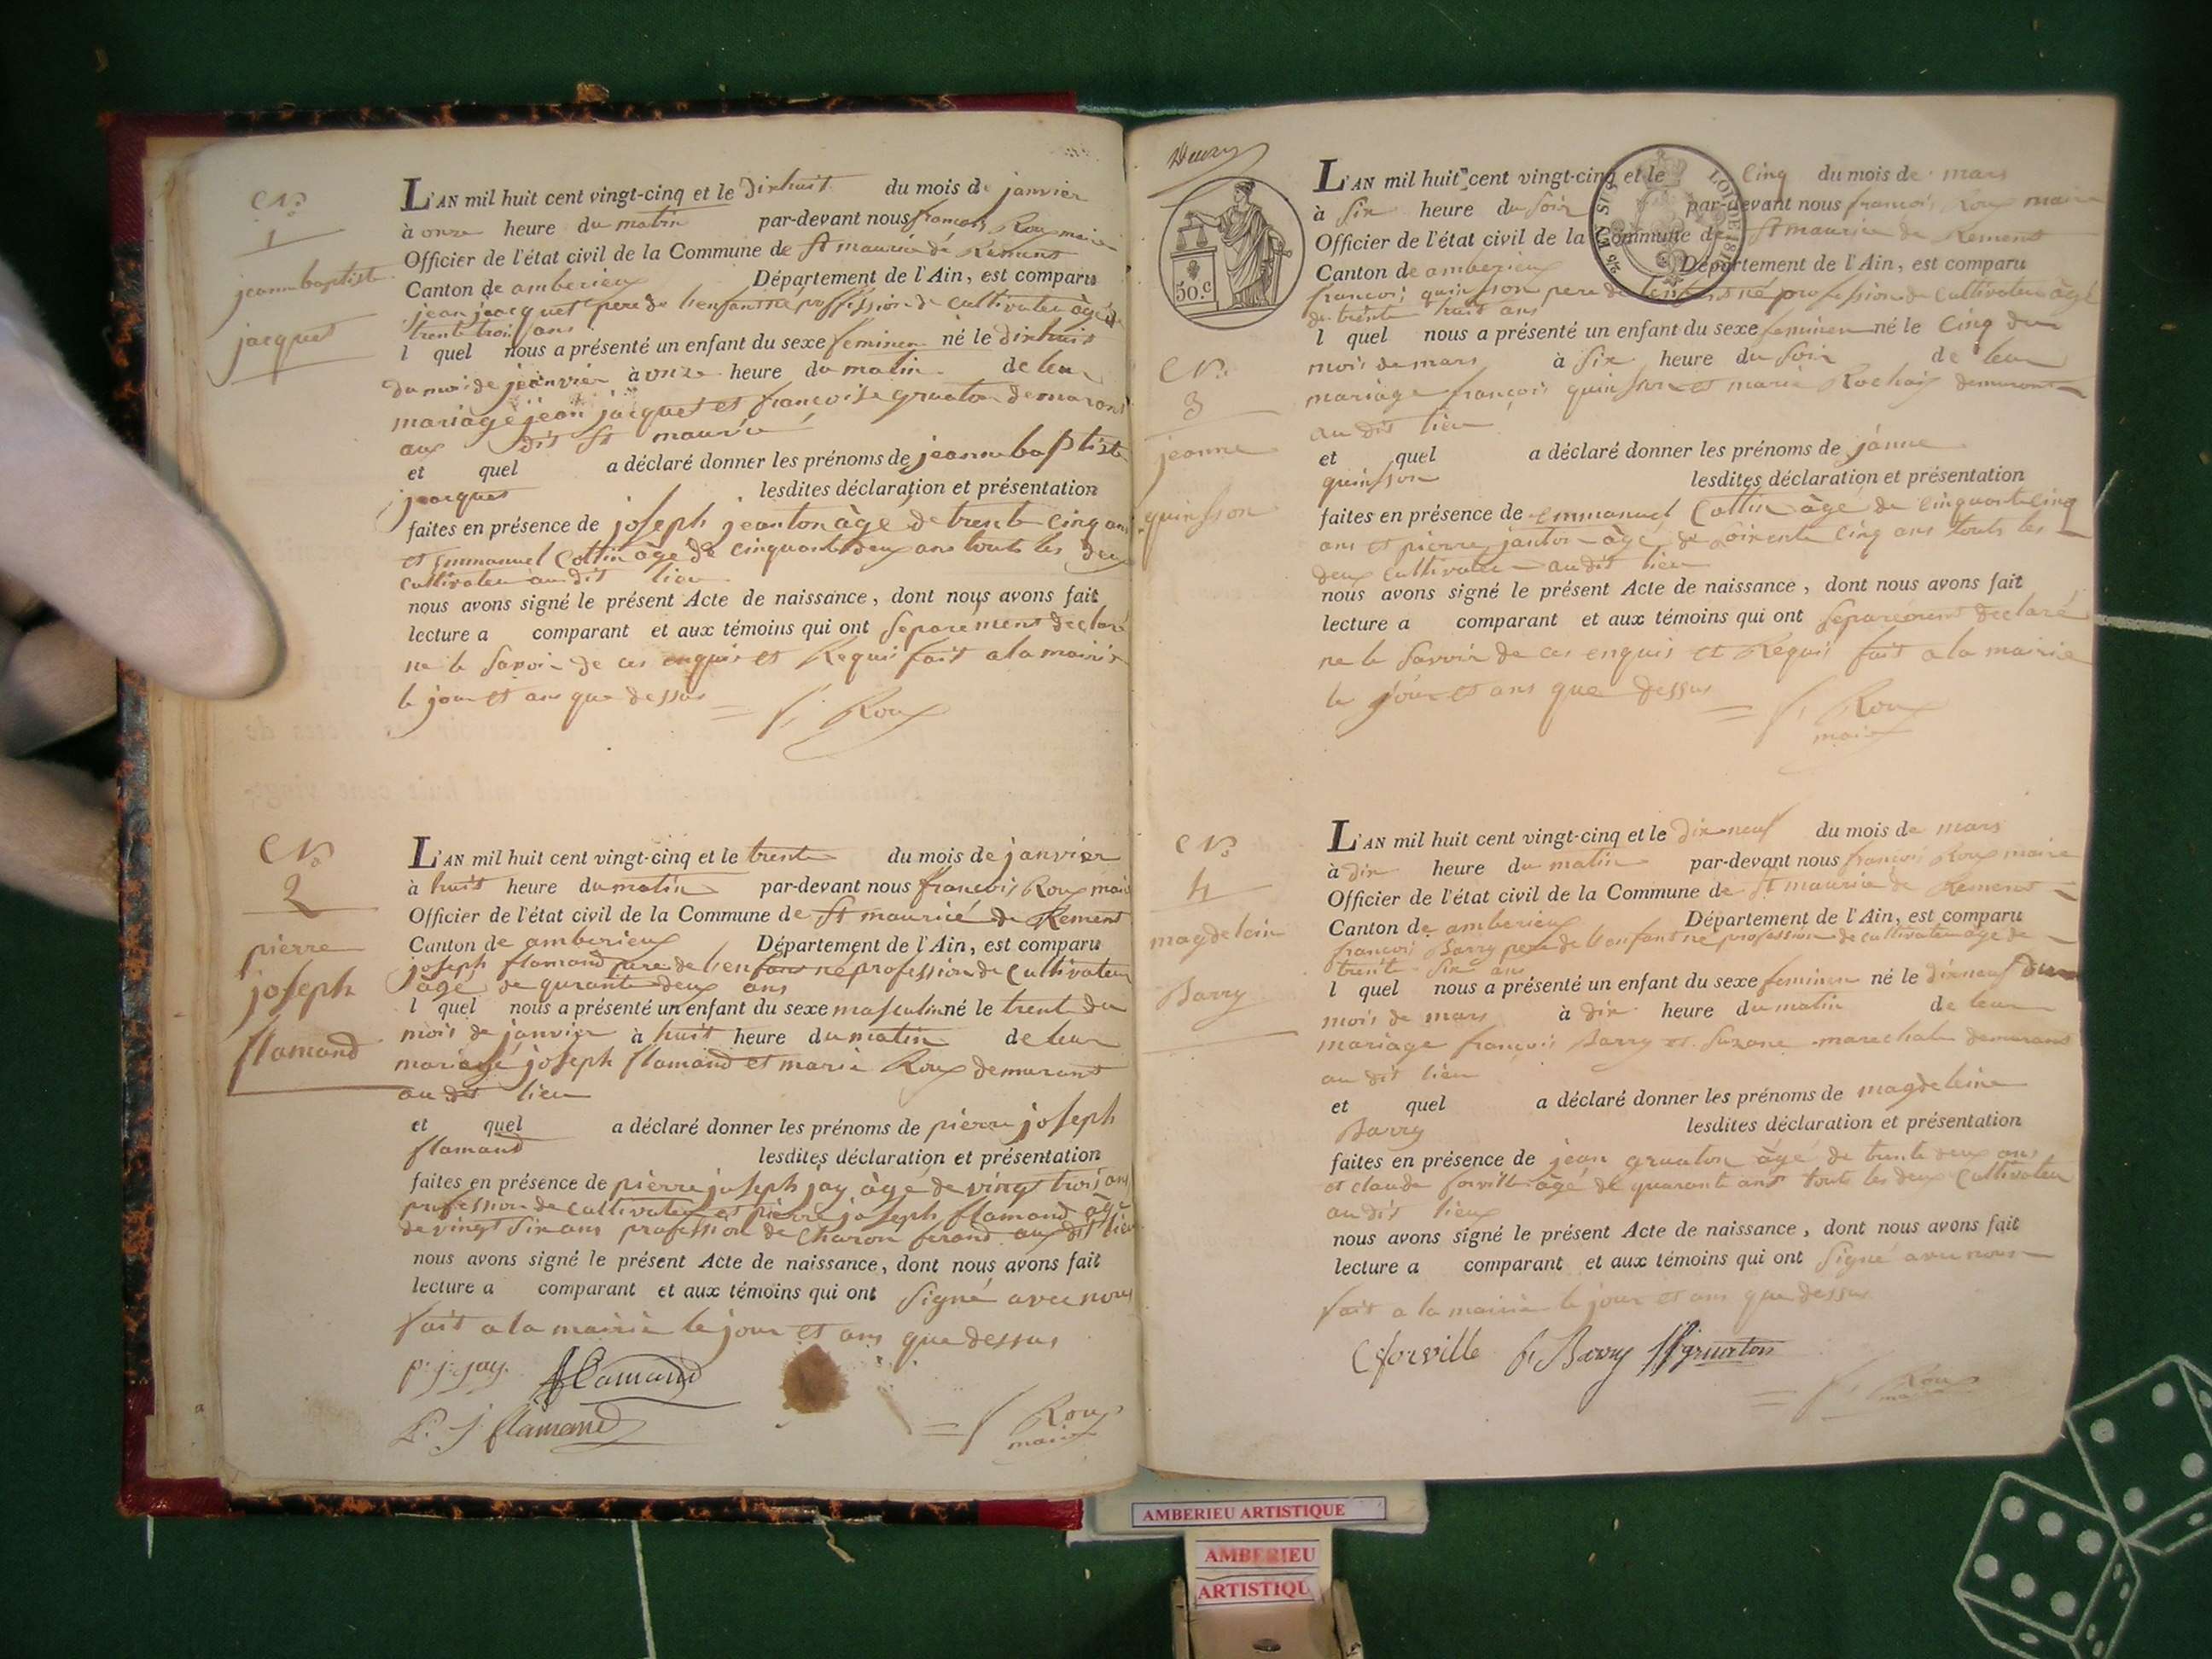 N.º
1
jeanne baptiste
jacquet
L'AN mil huit cent vingt-cinq et le dixhuit du mois de janvier
à onze heure du matin par-devant nous francois Roux maire
Officier de l'état civil de la Commune de St maurice de Rement
Canton de amberieux Département de l'Ain, est comparu
jean jacquet pere de l'enfant né proffission de cultivateur âgé de
trente trois ans
l quel nous a présenté un enfant du sexe feminen né le dixhuit
du moi de jeanvier à onze heure du matin de leur
mariage jean jacquet et francoise gruaton demurant
aux dit St maurice
et quel a déclaré donner les prénoms de jeanne baptiste
jacquet lesdites déclaration et présentation
faites en présence de joseph jeanton âgé de trente cinq ans
et Emmanuel Cottin âgé de cinquante deux ans touts les deux
cultivateu au dit lieu
nous avons signé le présent Acte de naissance, dont nous avons fait
lecture a comparant et aux témoins qui ont separement declaré
ne le savoir de ces enquis et Requis fait a la mairie
le jour et ans que dessus = f. Roux
N.º
2
pierre
joseph
flamand
L'AN mil huit cent vingt-cinq et le trente du mois de janvier
à huit heure du matin par-devant nous francois Roux maire
Officier de l'état civil de la Commune de St maurice de Rement
Canton de amberieux Département de l'Ain, est comparu
joseph flamand pere de l'enfant né profession de Cultivateur
âgé de qurante deux ans
l quel nous a présenté un enfant du sexe masculin né le trente du
mois de janvier à huit heure du matin de leur
mariage joseph flamand et marie Roux demurant
au dit lieu
et quel a déclaré donner les prénoms de pierre joseph
flamand lesdites déclaration et présentation
faites en présence de pierre joseph jay âgé de vingt trois ans
profession de cultivateur et pierre joseph flamand âgé
de vingt six ans profession de charon ferand aux dit lieu
nous avons signé le présent Acte de naissance, dont nous avons fait
lecture a comparant et aux témoins qui ont signé avec nous
fait a la mairie le jour et ans que dessus
p. j. jay. flamand
P. J flamand = f Roux
maire
50.c
LOI DE 1816
N.º
3
jeanne
quinsson
L'AN mil huit cent vingt-cinq et le Cinq du mois de mars
à six heure du soir par-devant nous francois Roux maire
Officier de l'état civil de la Commune de St maurice de Rement
Canton de amberieux Département de l'Ain, est comparu
francois quinsson pere de l'enfant né profession de cultivateur âgé
de trente huit ans
l quel nous a présenté un enfant du sexe feminen né le cinq du
mois de mars à six heure du soir de leur
mariage françois quinsson et marie Rochaix demurant
au dit lieu
et quel a déclaré donner les prénoms de jânne
quinsson lesdites déclaration et présentation
faites en présence de Emmanuel Cottin âgé de cinquante cinq
ans et pierre janton âgé de soixente cinq ans touts les
deux cultivateu au dit lieu
nous avons signé le présent Acte de naissance, dont nous avons fait
lecture a comparant et aux témoins qui ont separément declaré
ne le savoir de ces enquis et Requis fait a la mairie
le jour et ans que dessus = f. Roux
maire
N.º
4
magdelein
Barry
L'AN mil huit cent vingt-cinq et le dix neuf du mois de mars
à dix heure du matin par-devant nous françois Roux maire
Officier de l'état civil de la Commune de St maurice de Rement
Canton de amberieux Département de l'Ain, est comparu
françois Barry pere de l'enfant né profession de cultivateur âgé de
trente six ans
l quel nous a présenté un enfant du sexe feminen né le dixneuf du
mois de mars à dix heure du matin de leur
mariage françois Barry et Suzane marechale demurant
au dit lieu
et quel a déclaré donner les prénoms de magdeleine
Barry lesdites déclaration et présentation
faites en présence de jean gruaton âgé de trente deux ans
et claude forville âgé de quarant ans touts les deux Cultivateu
au dit lieux
nous avons signé le présent Acte de naissance, dont nous avons fait
lecture a comparant et aux témoins qui ont signé avec nous
fait a la mairie le jour et ans que dessus
C forville f. Barry gruaton
= f. Roux
maire
AMBERIEU ARTISTIQUE
AMBERIEU
ARTISTIQU